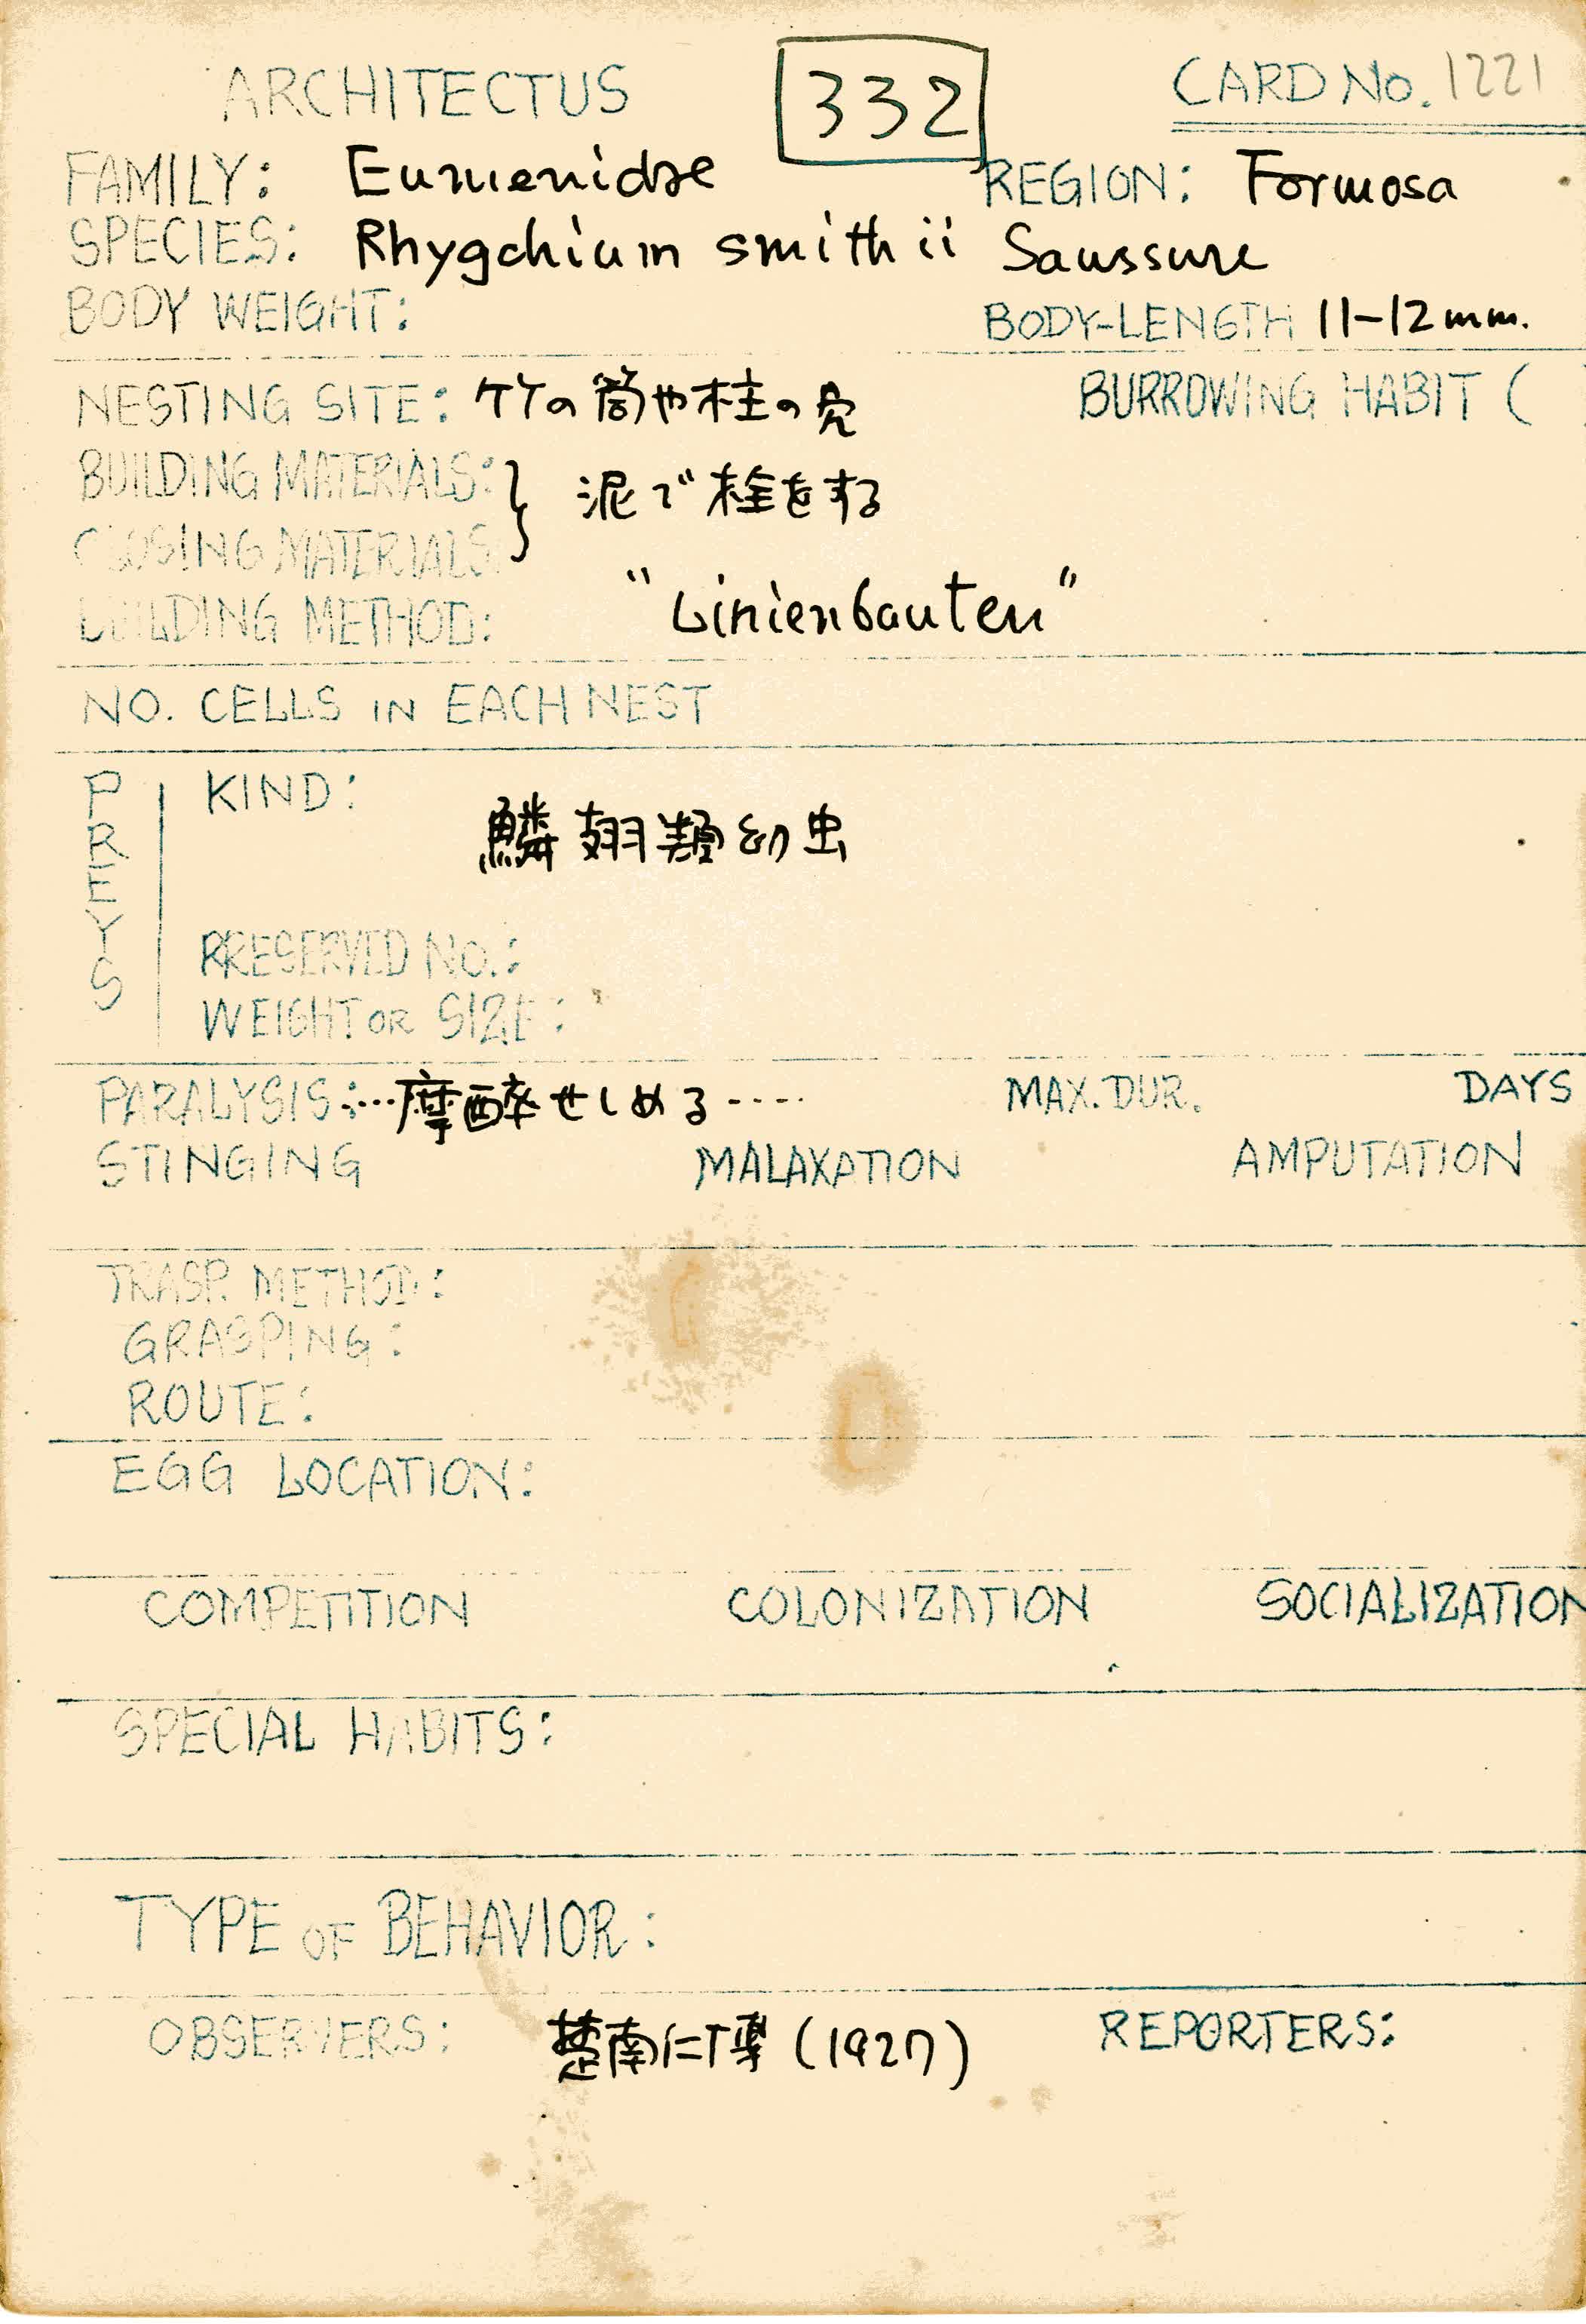 ARCHITECTUS 332 CARD No. 1221
FAMILY: Eumenidae REGION: Formosa
SPECIES: Rhygchium smithii Saussure
BODY WEIGHT: BODY-LENGTH 11-12mm.
NESTING SITE: 竹の筒や柱の穴 BURROWING HABIT (
BUILDING MATERIALS: } 泥で栓をする
CLOSING MATERIALS:
BUILDING METHOD: "Linienbauten"
NO. CELLS IN EACH NEST
PREYS
KIND:
鱗翅類幼虫
PRESERVED NO.:
WEIGHT OR SIZE:
PARALYSIS: ...麻酔せしめる.... MAX. DUR. DAYS
STINGING MALAXATION AMPUTATION
TRASP. METHOD:
GRASPING:
ROUTE:
EGG LOCATION:
COMPETITION COLONIZATION SOCIALIZATION
SPECIAL HABITS:
TYPE OF BEHAVIOR:
OBSERVERS: 楚南仁博 (1927) REPORTERS: